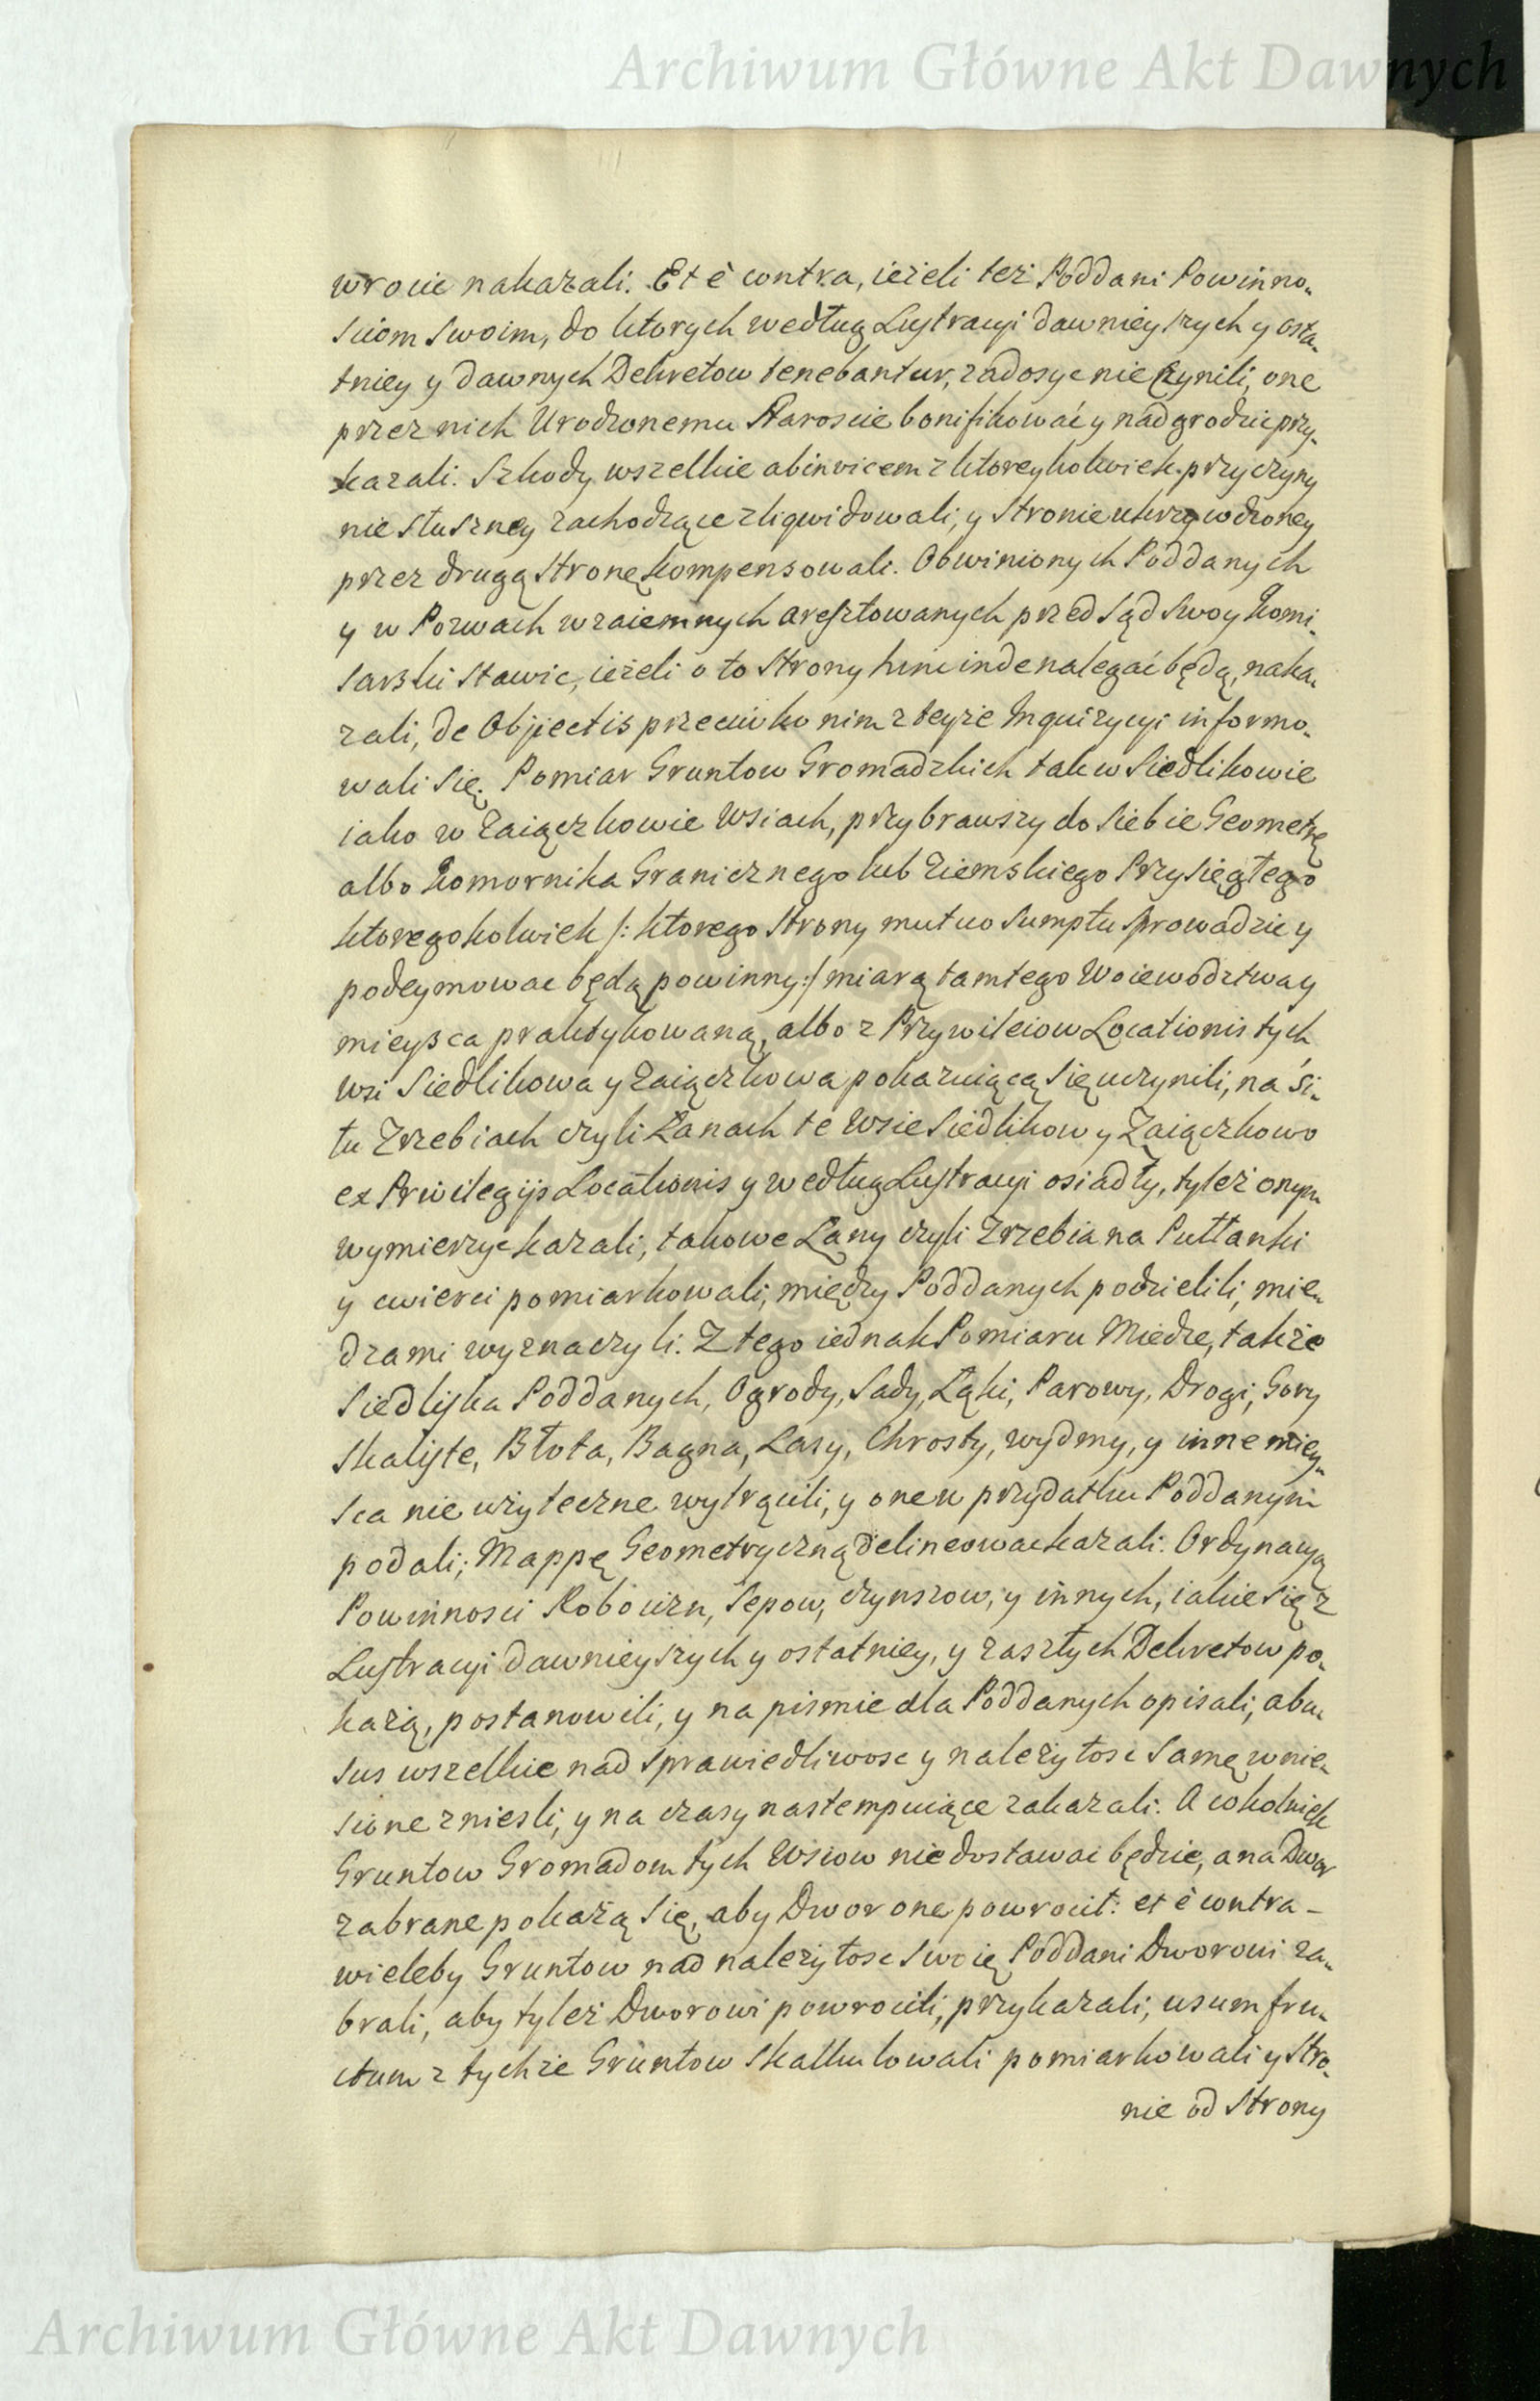 Archiwum Główne Akt Dawnych
wrocic nakazali. Et è contra, ieżeli też Poddani Powinno-
sciom swoim, do ktorych według Lustracyi dawnieyszych y osta-
tniey y dawnych Dekretow tenebantur, zadosyc nie czynili, one
przez nich Urodzonemu Staroscie bonifikować y nadgrodzic przy-
kazali. Szkody wszelkie abinvicem z ktoreykolwiek przyczyny
nie słuszney zachodzące zliqwidowali, y Stronie ukrzywdzoney
przez drugą Stronę kompensowali. Obwinionych Poddanych
y w Pozwach wzaiemnych aresztowanych przed Sąd swoy Komi-
sarski stawic, ieżeli o to Strony hinc inde nalegać będą, naka-
zali, de Objectis przeciwko nim z teyże Inquizycyi informo-
wali się. Pomiar Gruntow Gromadzkich tak w Siedlikowie
iako w Zaiączkowie Wsiach, przybrawszy do siebie Geometrę
albo Komornika Granicznego lub Ziemskiego Przysięgłego
ktoregokolwiek /: ktorego Strony mutuo sumptu sprowadzic y
podeymowac będą powinny :/ miarą tamtego Woiewodztwa y
mieysca praktykowaną, albo z Przywileiow Locationis tych
Wsi Siedlikowa y Zaiączkowa pokazuiącą się uczynili, na si-
tu Zrzebiach czyli Łanach te Wsie Siedlikow y Zaiączkowo
ex Privilegijs Locationis y według Lustracyi osiadły, tyleż onym
wymierzyc kazali, takowe Łany czyli Zrzebia na Pułłanki
y cwierci pomiarkowali, między Poddanych podzielili, mie-
dzami wyznaczyli. Z tego iednak Pomiaru Miedze, także
Siedliska Poddanych, Ogrody, Sady, Łąki, Parowy, Drogi, Gory
skaliste, Błota, Bagna, Lasy, Chrosty, wydmy, y inne miey-
sca nie użyteczne wytrącili, y one w przydatku Poddanym
podali; Mappę Geometryczną delineowac kazali. Ordynacyą
Powinnosci Robocizn, Sepow, czynszow, y innych, iakie się z
Lustracyi dawnieyszych y ostatniey, y zaszłych Dekretow po-
każą, postanowili, y na pismie dla Poddanych opisali, abu-
sus wszelkie nad sprawiedliwosc y należytosc samę wnie-
sione zniesli, y na czasy nastempuiące zakazali. A cokolwiek
Gruntow Gromadom tych Wsiow niedostawać będzie, a na Dwor
zabrane pokażą się, aby Dwor one powrocił: et è contra -
wieleby Gruntow nad należytosc swoię Poddani Dworowi za-
brali, aby tyleż Dworowi powrocili, przykazali, usum fru-
ctum z tychże Gruntow skalkulowali pomiarkowali y Stro-
nie od Strony
Archiwum Główne Akt Dawnych